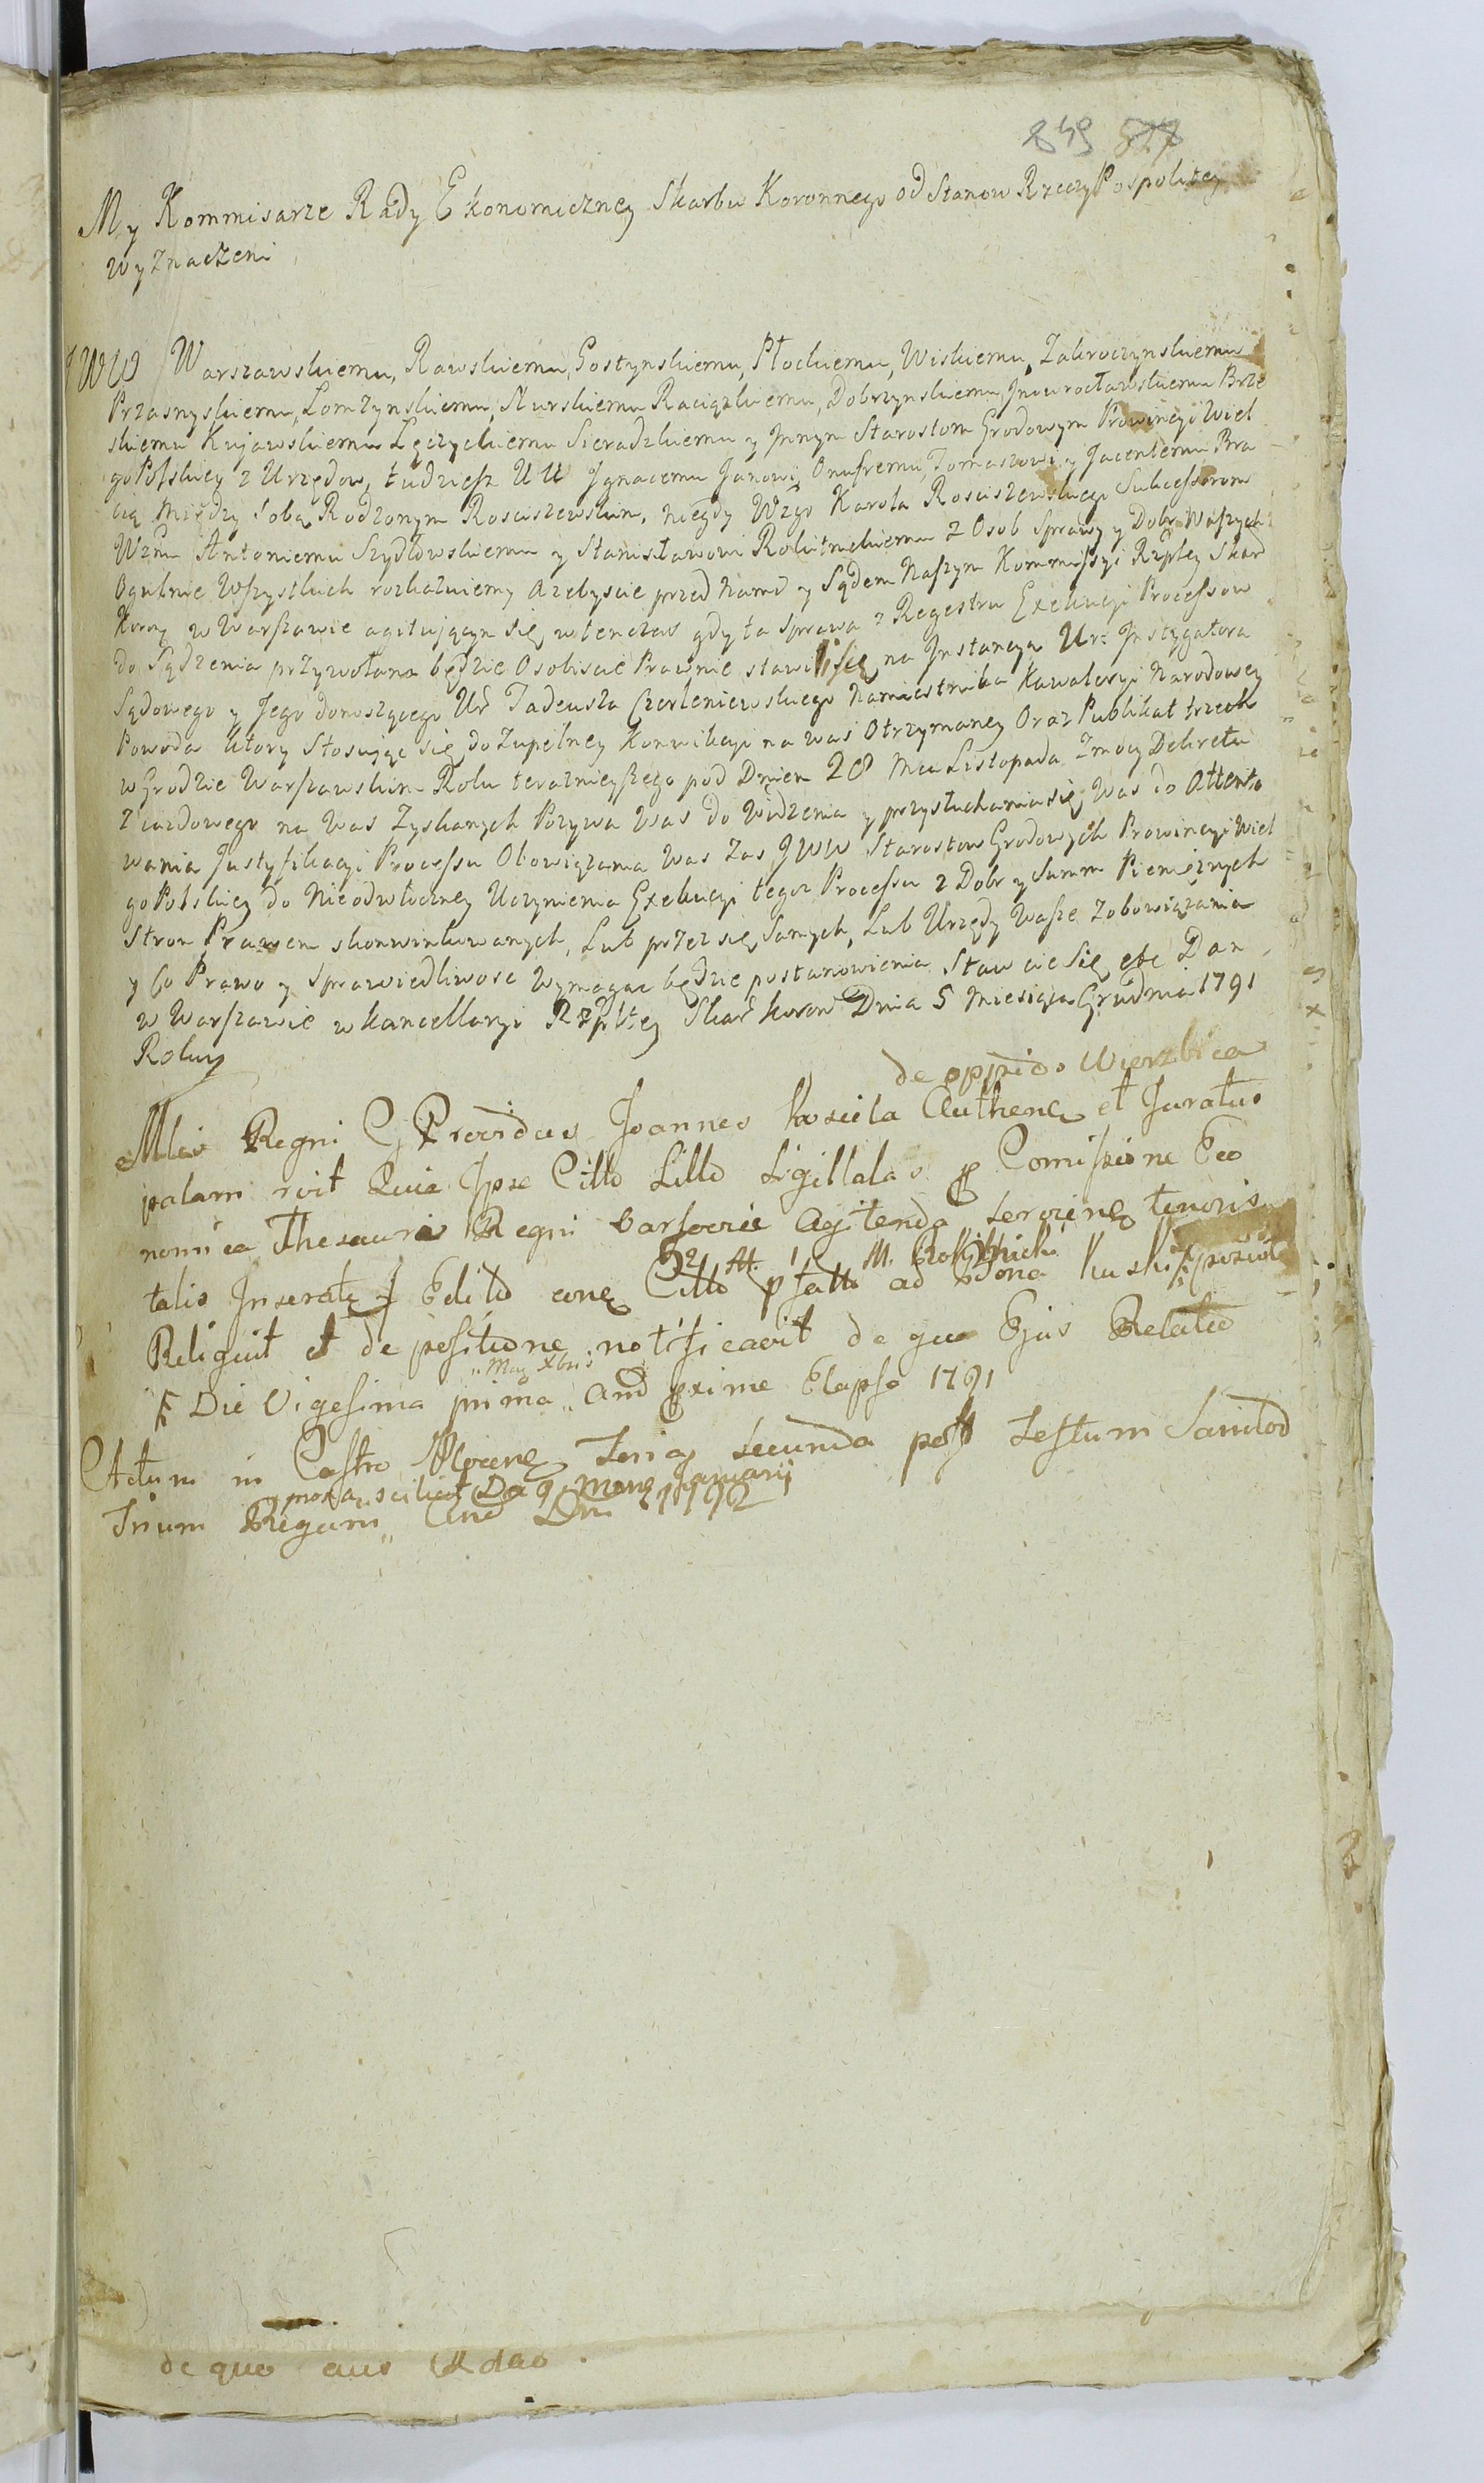 849 827
My Kommisarze Rady Ekonomiczney Skarbu Koronnego od Stanow Rzeczy Pospolitey
wyznaczeni
JWW Warszawskiemu, Rawskiemu, Gostynskiemu, Płockiemu, Wiskiemu, Zakroczynskiemu
Przasnyskiemu, Lomzynskiemu, Nurskiemu Raciązkiemu, Dobrzynskiemu, Jnowrocławskiemu Brze
skiemu Kujawskiemu Lęczyckiemu Sieradzkiemu y Jnnym Starostom Grodowym Prowincyi Wiel
go Polskiey z Urzędow, tudziesz UU Jgnacemu Janowi, Onufremu, Tomaszowi y Jacentemu Bra
cią między sobą Rodzonym Rosciszewskim, niegdy Wzgo Karola Rosciszewskiego Sukcessorom
Wznu Antoniemu Szydłowskiemu y Stanisławowi Rokitnickiemu z Osob Sprawy y Dobr Waszych
Ogulnie Wszystkich rozkazuiemy azebyscie przed Nami y Sądem Naszym Kommissyi Rzpltey Skar
Koroņ w Warszawie agitującym się, wtenczas gdy ta sprawa z Regestru Exekucyi Processow
do Sądzenia przywołana będzie Osobiscie Prawnie stawili się na Jnstancyą Ur: Jnstygatora
Sądowego y Jego donoszącego Ur Tadeusza Czerleniewskiego Namiestnika Kawaleryi Narodowey
Powoda ktory stosując się do Zupełney Konwikcyi na was Otrzymaney Oraz Publikat trzech
w Grodzie Warszawskim Roku terazniejszego pod Dniem 28 Mca Listopada Zmocy Dekretu
Ziazdowego na Was Zyskanych Pozywa Was do Widzenia y przysłuchania się, Was do Attento
wania Justyfikacyi Processu Obowiązania Was Zas JWW Starostow Grodowych Prowincyi Wiel
go Polskiey do Nieodwłoczney Uczynienia Exekucyi tegoz Processu z Dobr y Summ Pieniężnych
Stron Prawem skonwinkowanych, Lub przez się Samych, Lub Urzędy Wasze Zobowiązania
y Co Prawo y Sprawiedliwosc Wymagac będzie postanowienia Stawcie Się etc Dan
w Warszawie w kancellaryi Rzpltey Skar koron Dnia 5 Miesiąca Grudnia 1791
Roku
de oppido Wierzbica
Mlis Regni G Providus Joannes Kosciela Authenq et Juratus
palam rvit Quia Jpse Citto Litto Sigillatas Comissione Eco
nomica Thesauri Regni Varsovie Agitenda tenoris
talis Jnserate Edito Citto ad Bona
Reliquit et de positione notificavit de quo Ejus Relatio
Xbris
Die Vigesima prima Anno proxime Elapso 1791
Actum in Castro Plocenq Feria secunda post Festum Sanctod
proxa scilicet Die 9 Mensq Januarij
Trium Regum Anno Dni 1792
de quo